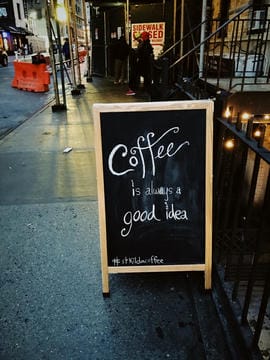 SIDEWALK
CLOSED
Coffee
is always a
good idea
#stkildacoffee